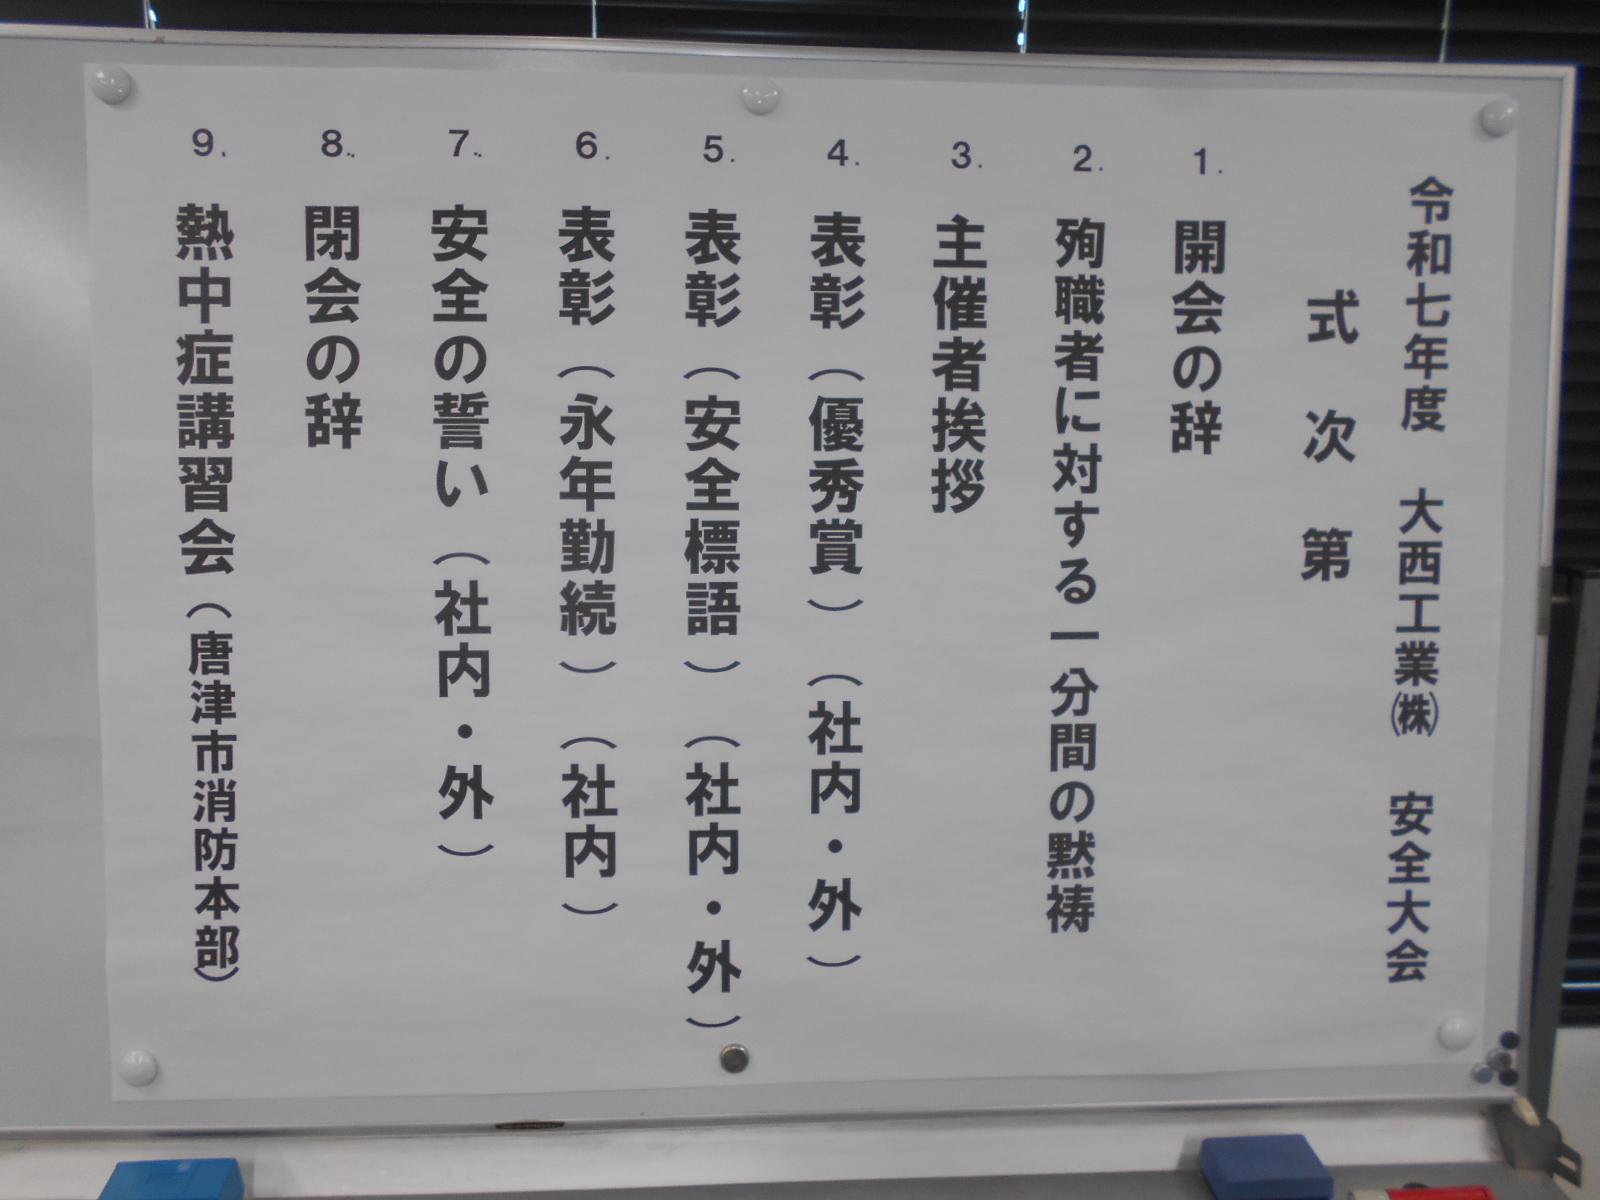 令和七年度　大西工業㈱　安全大会
式次第
1. 開会の辞
2. 殉職者に対する一分間の黙祷
3. 主催者挨拶
4. 表彰（優秀賞）（社内・外）
5. 表彰（安全標語）（社内・外）
6. 表彰（永年勤続）（社内）
7. 安全の誓い（社内・外）
8. 閉会の辞
9. 熱中症講習会（唐津市消防本部）